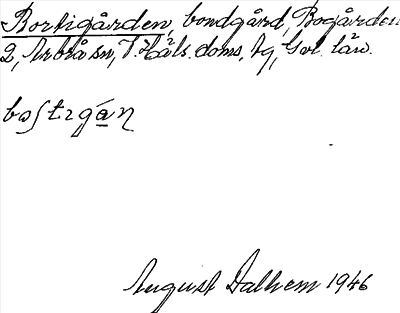 Bortigården, bondgård, Bogården
2, Arbrå sn, V. Häls. doms. tg, Gvl. län.
August Dalhem 1946